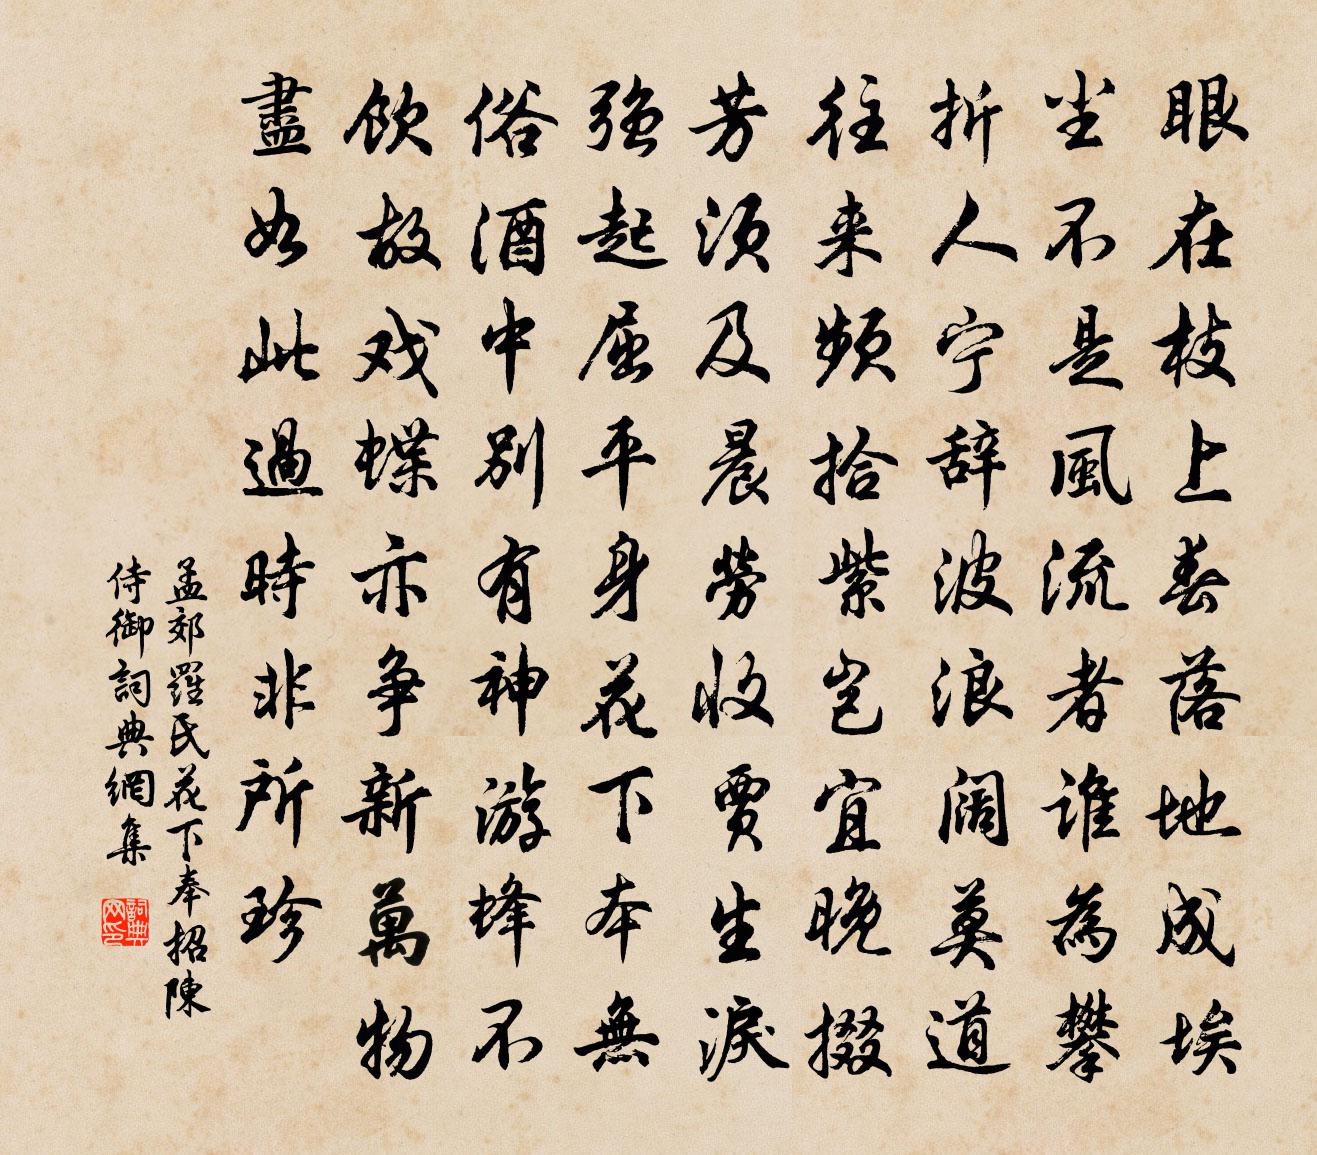 眼在枝上春落地成埃
尘不是風流者谁為攀
折人宁辞波浪阔莫道
往来频拾紫岂宜晚掇
芳须及晨劳收贾生淚
强起屈平身花下本無
俗酒中别有神游蜂不
飲故戏蝶亦争新萬物
盡如此過時非所珍
孟郊羅氏花下奉招陳
侍御詞典網集
詞典网印